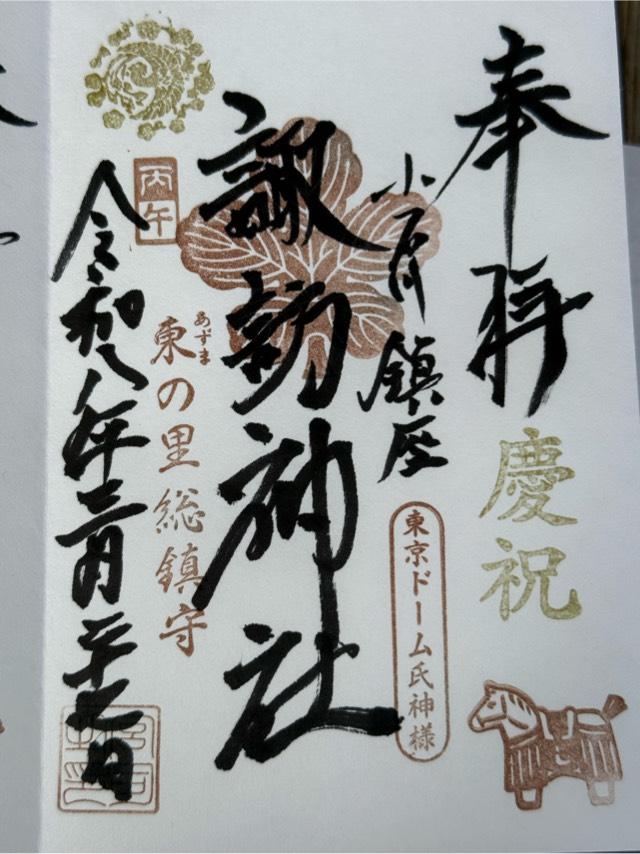 奉拝
慶祝
小石川鎮座
東京ドーム氏神様
諏訪神社
東の里総鎮守
あずま
丙午
令和八年三月二十七日